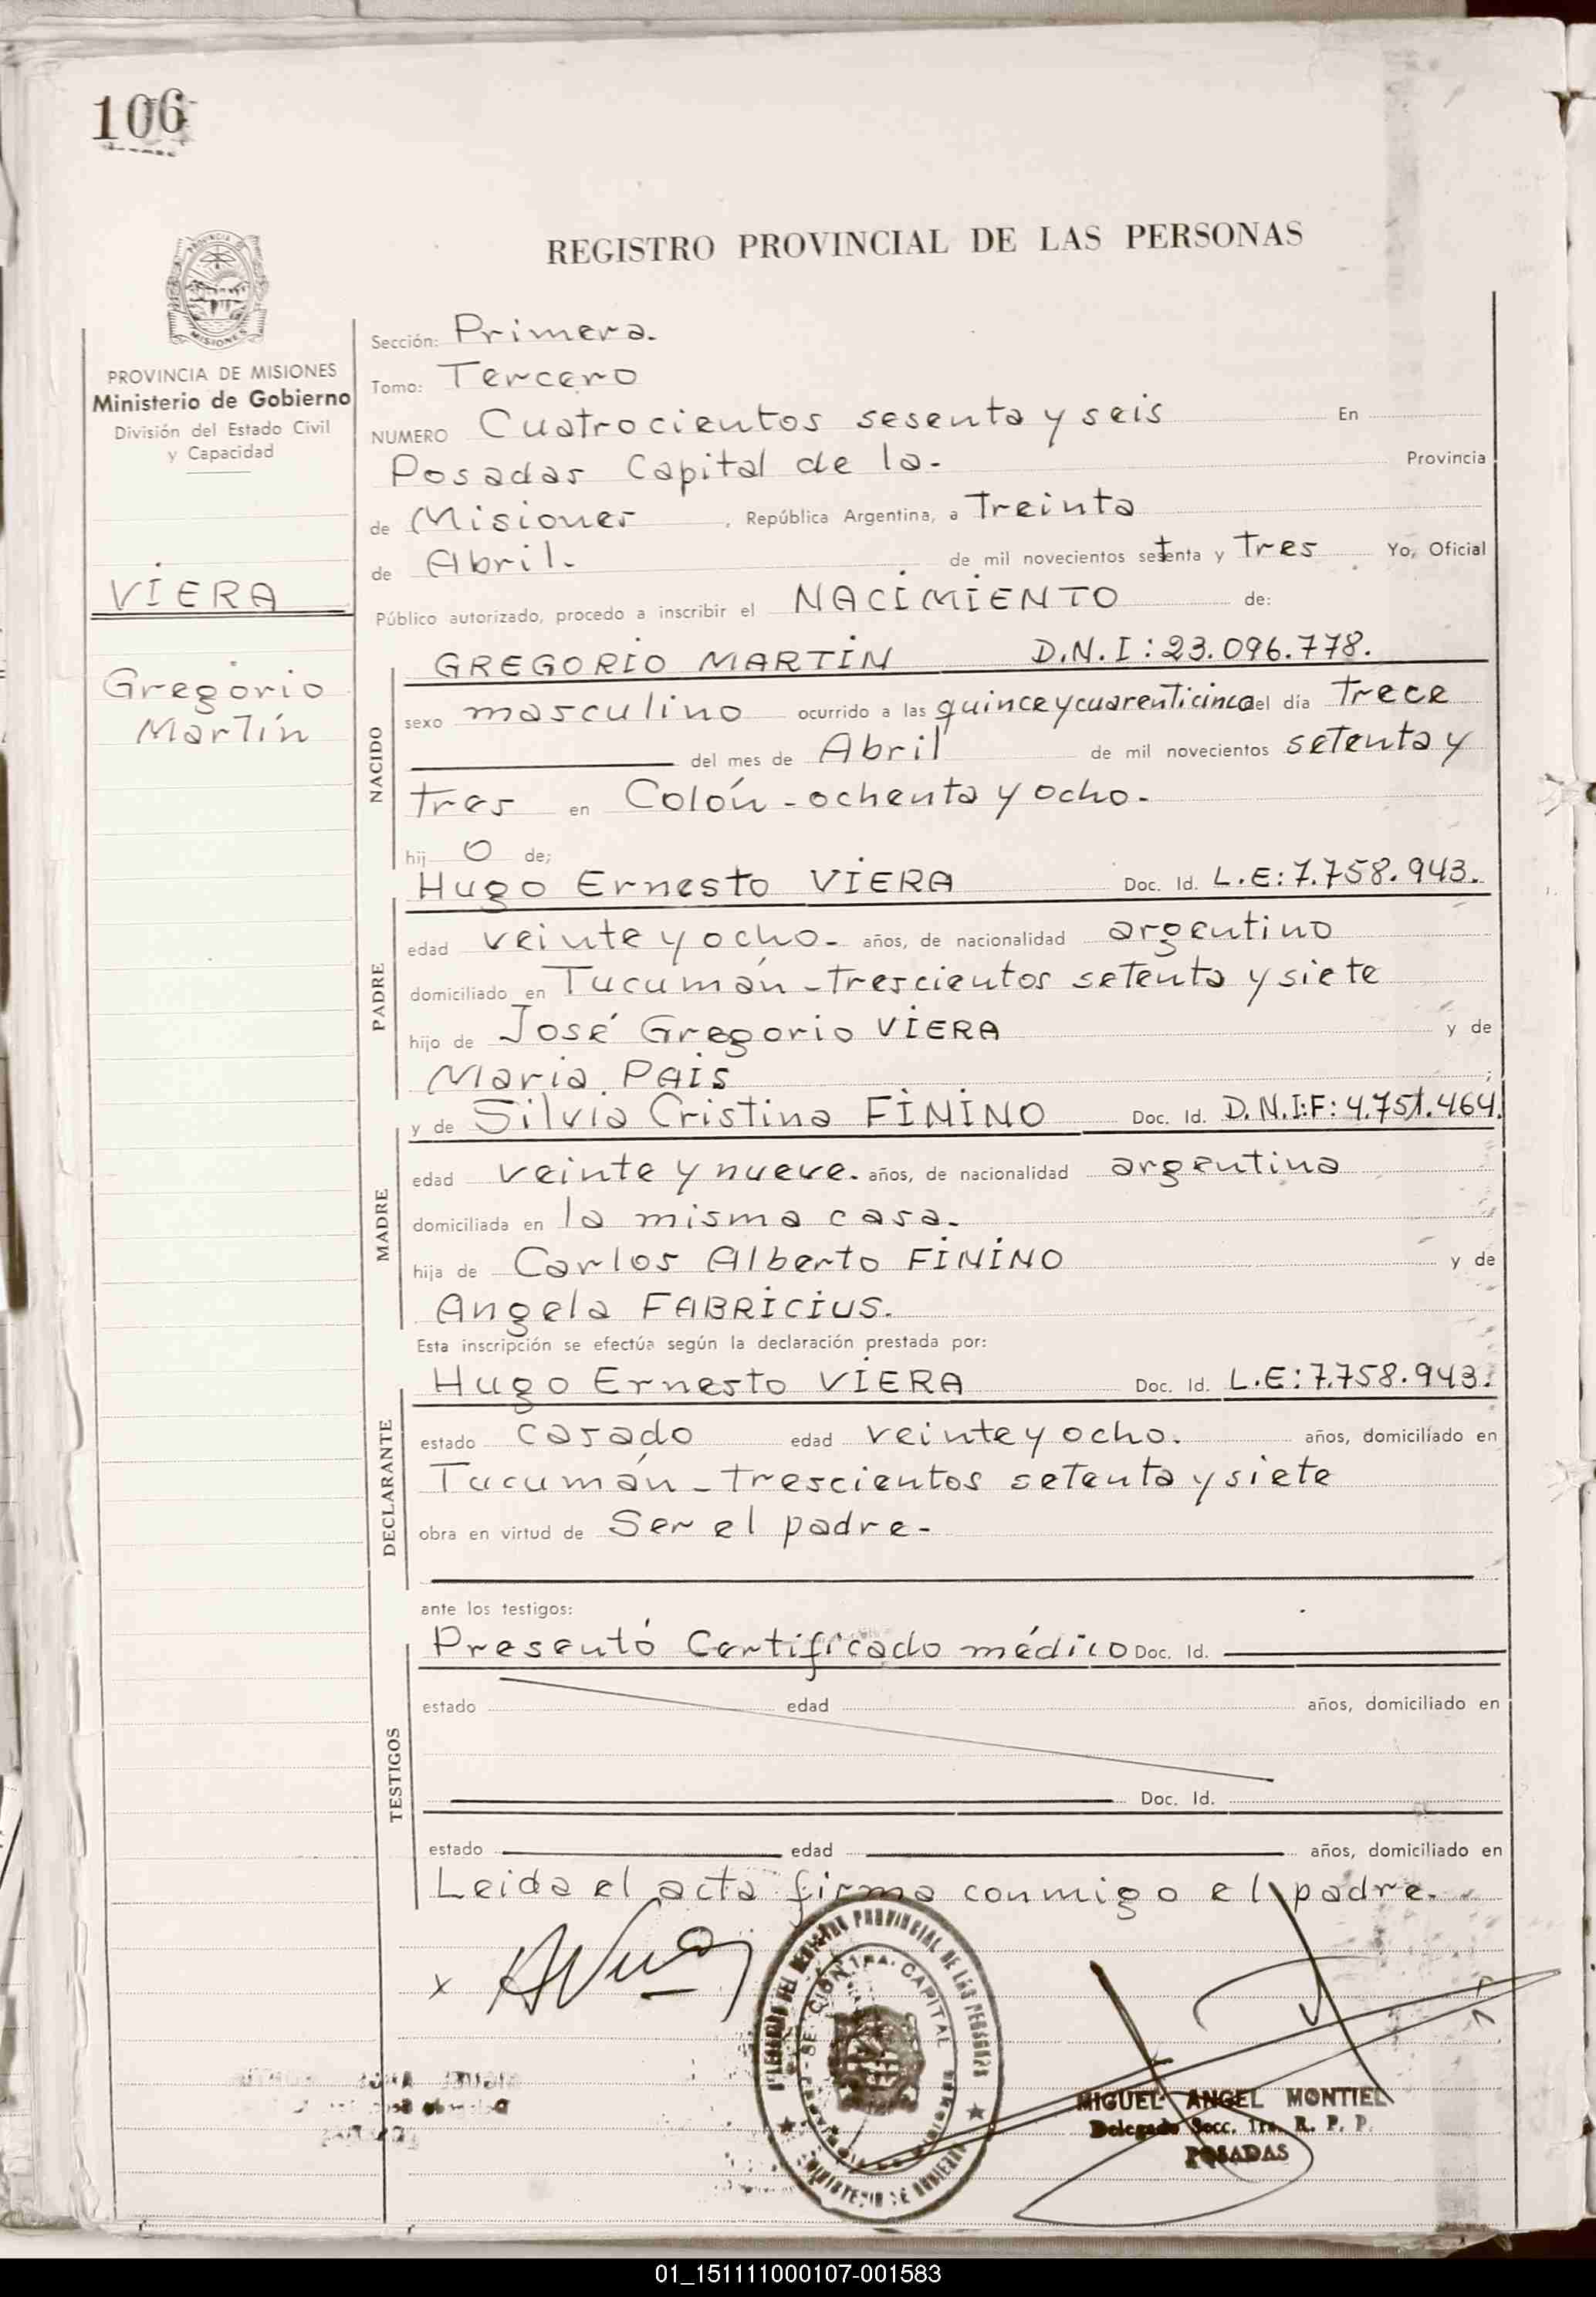 106
REGISTRO PROVINCIAL DE LAS PERSONAS
MISIONES
PROVINCIA DE MISIONES
Ministerio de Gobierno
División del Estado Civil
y Capacidad
VIERA
Gregorio
Martín
Sección: Primera.
Tomo: Tercero
NUMERO Cuatrocientos sesenta y seis En
Posadas Capital de la- Provincia
de Misiones, República Argentina, a Treinta
de Abril. de mil novecientos setenta y Tres Yo, Oficial
Público autorizado, procedo a inscribir el NACIMIENTO de:
NACIDO
GREGORIO MARTIN D.N.I: 23.096.778.
sexo masculino ocurrido a las quince y cuarenticinco del día Trece
del mes de Abril de mil novecientos setenta y
Tres en Colón - ochenta y ocho.
hij o de;
PADRE
Hugo Ernesto VIERA Doc. Id. L.E: 7.758.943.
edad veinte y ocho- años, de nacionalidad argentino
domiciliado en Tucumán - trescientos setenta y siete
hijo de José Gregorio VIERA y de
Maria PAIS ;
MADRE
y de Silvia Cristina FININO Doc. Id. D.N.I:F: 4.751.464.
edad veinte y nueve. años, de nacionalidad argentina
domiciliada en la misma casa.
hija de Carlos Alberto FININO y de
Angela FABRICIUS.
Esta inscripción se efectúa según la declaración prestada por:
DECLARANTE
Hugo Ernesto VIERA Doc. Id. L.E: 7.758.943.
estado casado edad veinte y ocho. años, domiciliado en
Tucumán - trescientos setenta y siete
obra en virtud de Ser el padre-
ante los testigos:
TESTIGOS
Presentó Certificado médico Doc. Id.
estado edad años, domiciliado en
Doc. Id.
estado edad años, domiciliado en
Leida el acta firma conmigo el padre.
x
PROVINCIAL DE LAS PERSONAS
SECCION 1RA. CAPITAL
MINISTERIO DE GOBIERNO
MIGUEL ANGEL MONTIEL
Delegado Secc. 1ra. R. P. P.
POSADAS
01_151111000107-001583